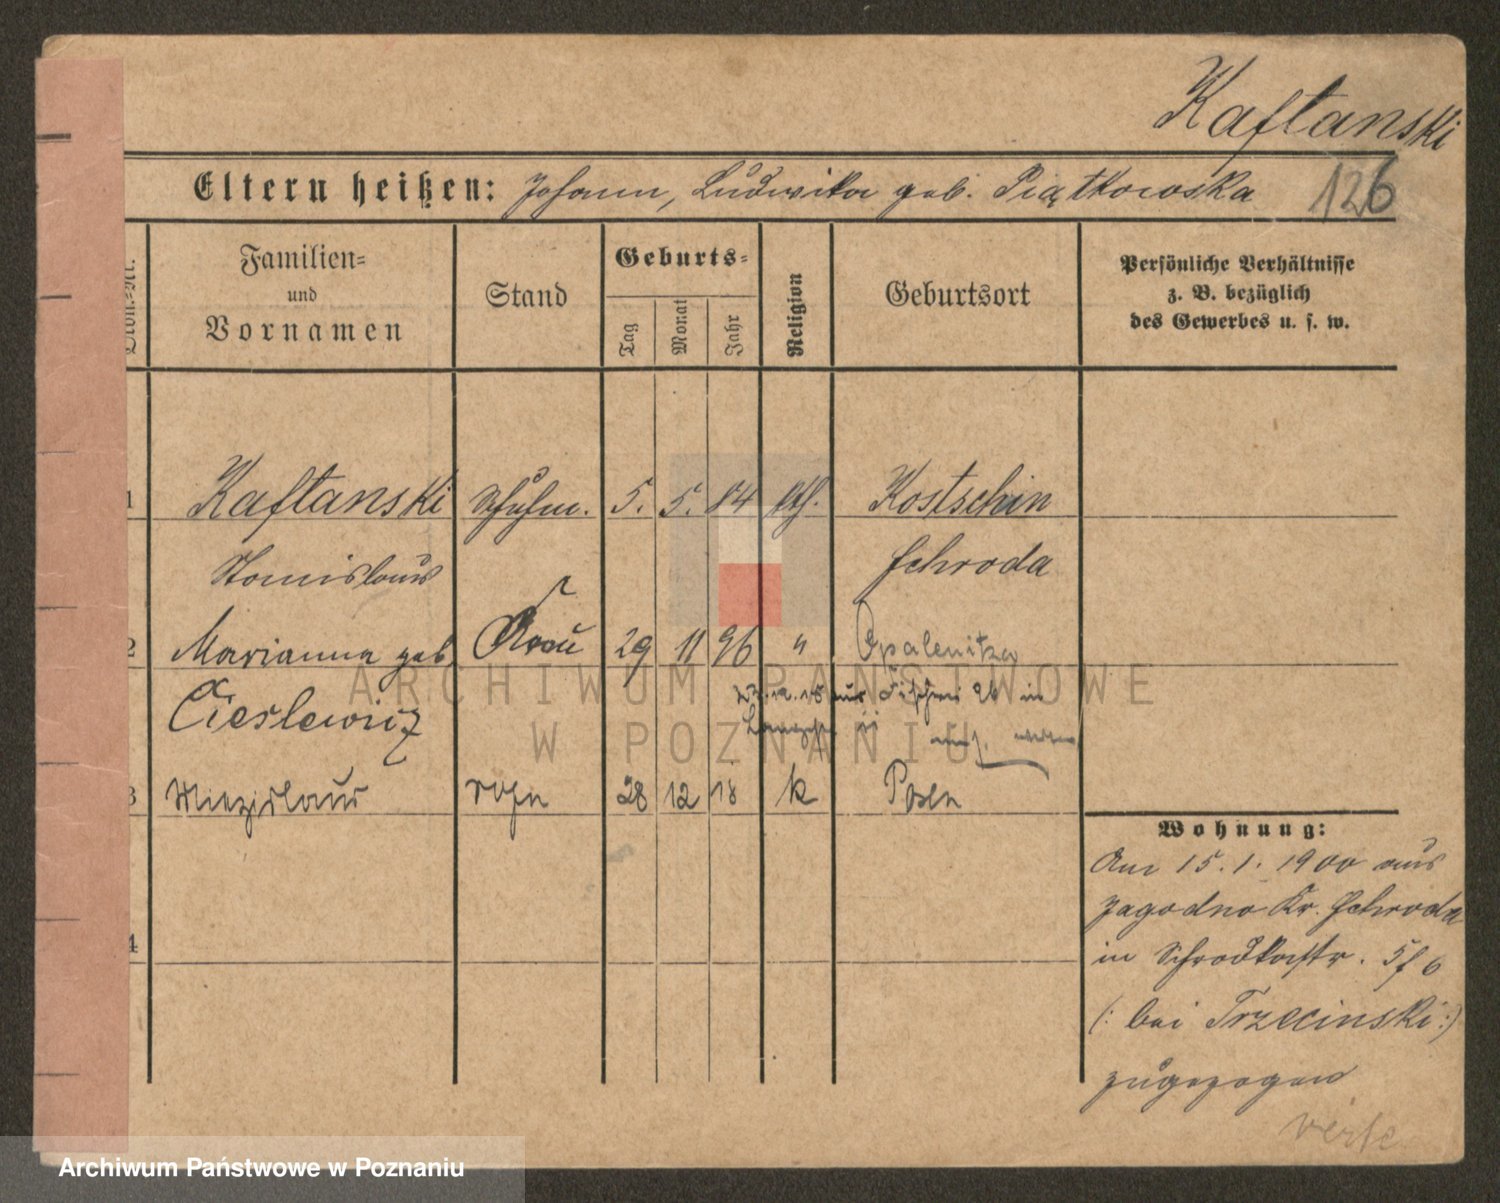 Kaftanski
Eltern heißen: Johann, Ludwika geb. Piątkowska 126
Familien=
und
Vornamen
Stand
Geburts=
Tag
Monat
Jahr
Religion
Geburtsort
Persönliche Verhältnisse
z. B. bezüglich
des Gewerbes u. s. w.
1 Kaftanski Schuhm. 5. 5. 84 kth. Kostschin
Stanislaus Schroda
2 Marianna geb. Frau 29 11 96 " Opalenitza
Cieslewicz
aus Fischerei 26 in
3 Miezislaus Sohn 28 12 18 k Posen
4
Wohnung:
Am 15.1.1900 aus
Jagodno Kr. Schroda
in Schrodkastr. 5/6
(: bei Trzecinski :)
zugezogen
ARCHIWUM PAŃSTWOWE
W POZNANIU
Archiwum Państwowe w Poznaniu